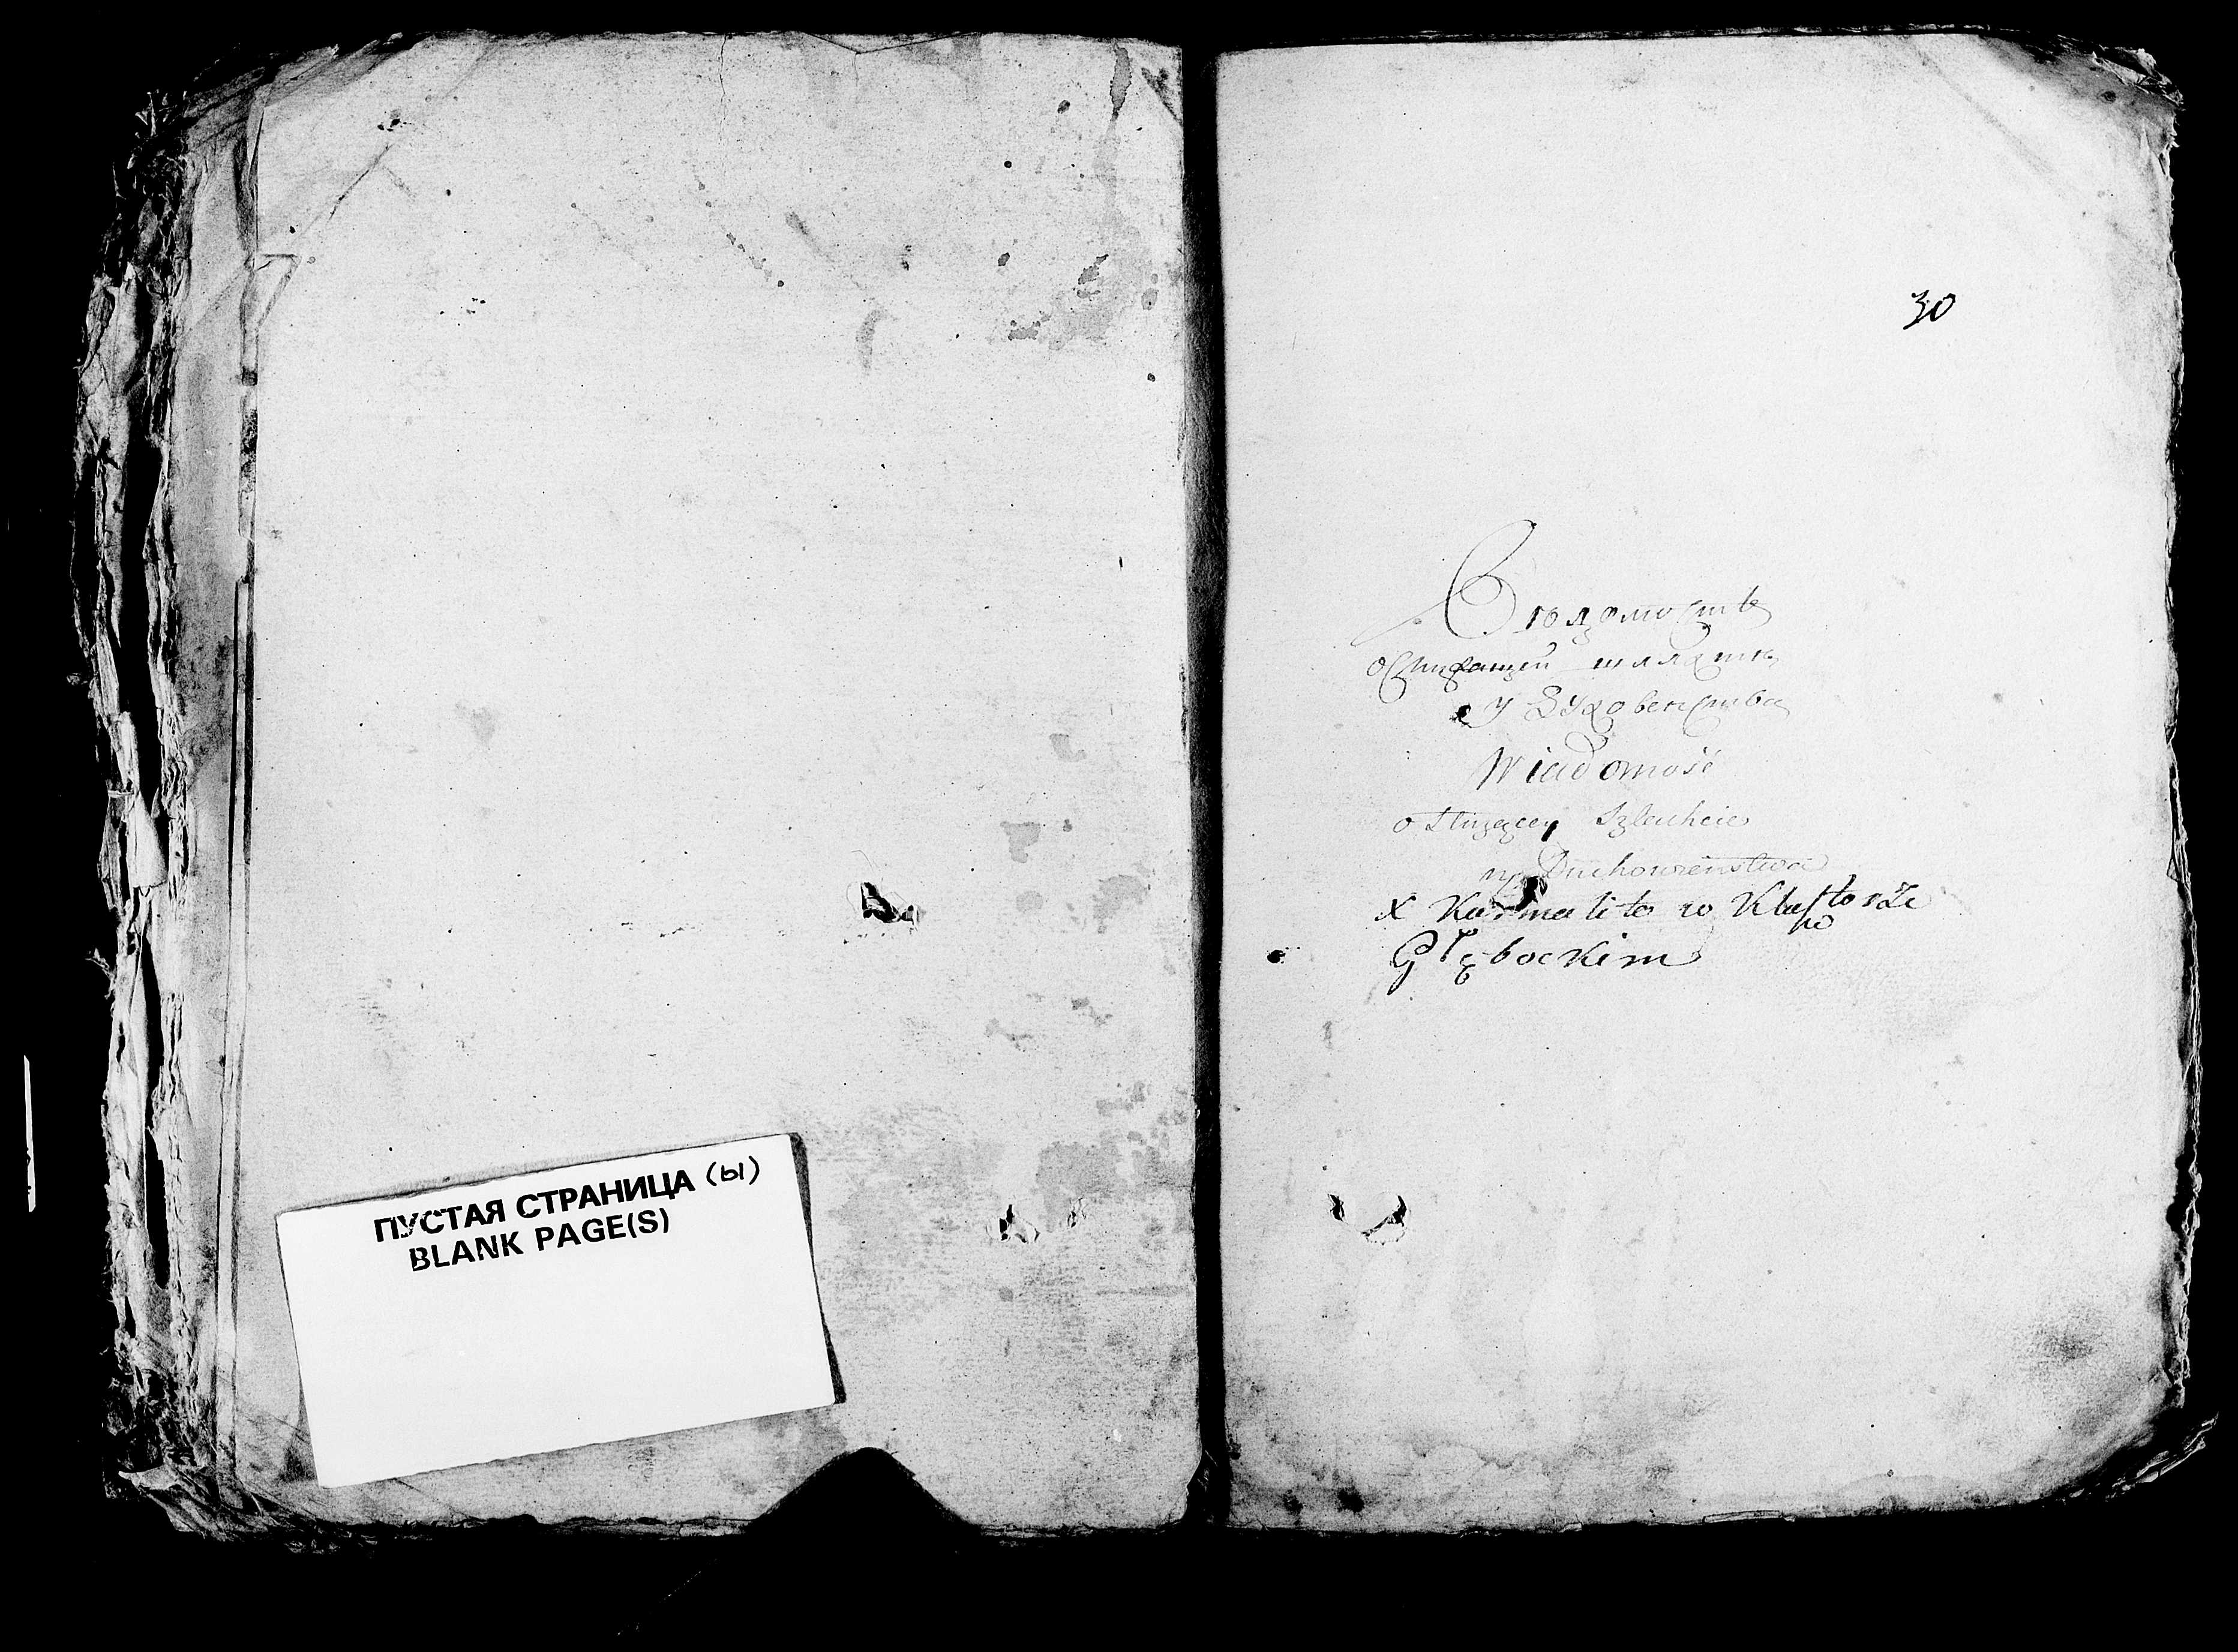 ПУСТАЯ СТРАНИЦА (ы)
BLANK PAGE(S)
30
Вѣдомость
о служащей шляхты
у Духовенства
Wiadomość
o Służącey Szlachcie
u Duchowieństwa
X Karmelito w Klasztorże
Głębockim